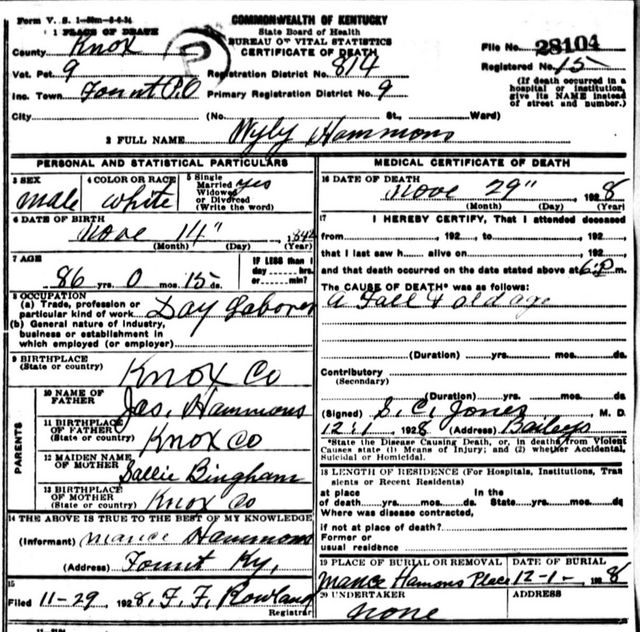 Form V. S. 1-50m-6-6-24
COMMONWEALTH OF KENTUCKY
1 PLACE OF DEATH
State Board of Health
BUREAU OF VITAL STATISTICS
CERTIFICATE OF DEATH
County Knox
File No. 28104
Vot. Pct. 9
Registration District No. 814
Registered No. 15
Inc. Town Fount P.O
Primary Registration District No. 9
(If death occurred in a hospital or institution, give its NAME instead of street and number.)
City (No. St., Ward)
2 FULL NAME Wyby Hammons
PERSONAL AND STATISTICAL PARTICULARS
3 SEX male
4 COLOR OR RACE white
5 Single Married Widowed or Divorced (Write the word) yes
6 DATE OF BIRTH
Nove 14" , 1842
(Month) (Day) (Year)
7 AGE
86 yrs. 0 mos. 15 ds.
IF LESS than 1 day ---- hrs. or ---- min.?
8 OCCUPATION
(a) Trade, profession or particular kind of work Day Laborer
(b) General nature of industry, business or establishment in which employed (or employer)
9 BIRTHPLACE
(State or country) Knox Co
PARENTS
10 NAME OF FATHER Jas. Hammons
11 BIRTHPLACE OF FATHER (State or country) Knox Co
12 MAIDEN NAME OF MOTHER Sallie Bingham
13 BIRTHPLACE OF MOTHER (State or country) Knox Co
14 THE ABOVE IS TRUE TO THE BEST OF MY KNOWLEDGE
(Informant) Mance Hammons
(Address) Fount Ky.
15
Filed 11-29, 1928. F. F. Rowland
Registrar
MEDICAL CERTIFICATE OF DEATH
16 DATE OF DEATH
Nove 29" , 1928
(Month) (Day) (Year)
17 I HEREBY CERTIFY, That I attended deceased
from , 192 , to , 192 ,
that I last saw h alive on , 192 ,
and that death occurred on the date stated above at 6 P.m.
The CAUSE OF DEATH* was as follows:
A Fall & old age
(Duration) yrs. mos. ds.
Contributory
(Secondary)
(Duration) yrs. mos. ds.
(Signed) S. C. Jones M. D.
12-1 1928 (Address) Baileys
*State the Disease Causing Death, or, in deaths from Violent Causes state (1) Means of Injury; and (2) whether Accidental, Suicidal or Homicidal.
18 LENGTH OF RESIDENCE (For Hospitals, Institutions, Transients or Recent Residents)
at place of death yrs. mos. ds. In the State yrs. mos. ds.
Where was disease contracted,
if not at place of death?
Former or usual residence
19 PLACE OF BURIAL OR REMOVAL
Mance Hamons Place
DATE OF BURIAL
12-1-, 1928
20 UNDERTAKER
none
ADDRESS